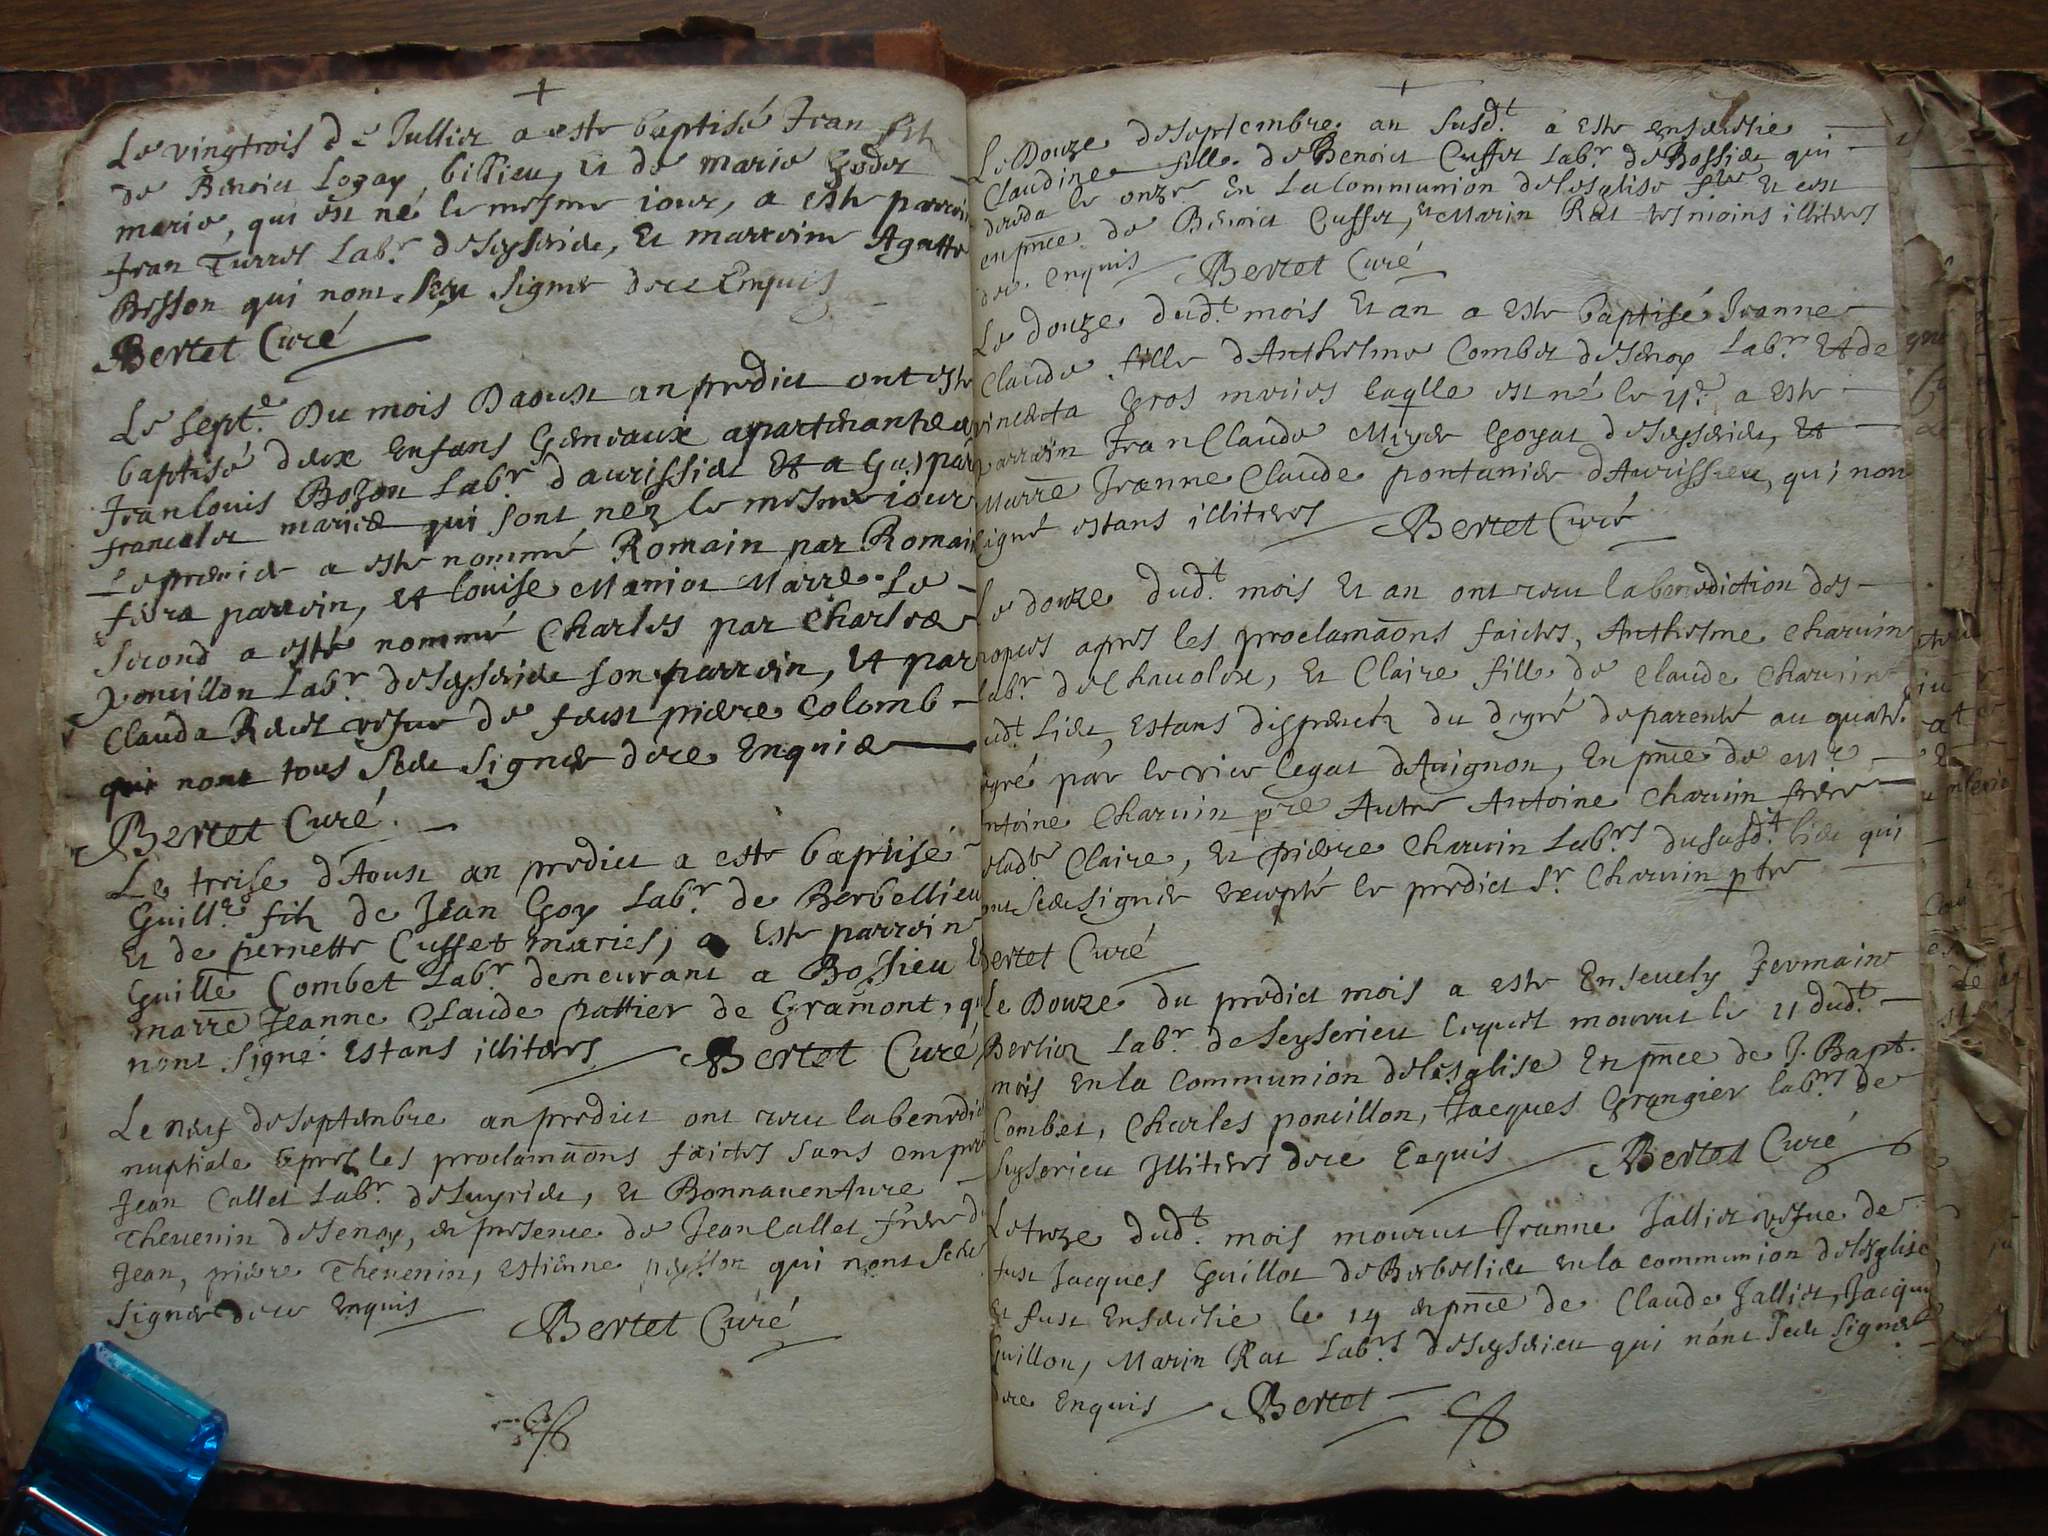 Le vingtrois de Jullier a este baptisé Jean fils
de Benoict Logay billieu, et de marie Godet
marie, qui est né le mesme iour, a este parrein
Jean Turrel Lab.r deseyserieu, Et marreine Agatte
Bisson qui nont sceu Signer dece Enquis
Bertet Curé
Le sept.e Du mois Daoust an predict ont este
baptisé deux Enfans Gemeaux apartenants a
Jeanlouis Bozon Lab.r daurissieu Et a
mariés qui sont nez le mesme iour
Le premier a este nommé Romain par Romain
parrein, et louise Maniot Marre. Le
second a esté nommé Charles par Charles
Poncillon Lab.r deseyserieu son parrein, et par
Clauda vefue de feust pierre Colomb
qui nont tous sceu Signer dece Enquis
Bertet Curé.
Le treise d'Aoust an predict a este baptisé
Guill.e fils de Jean Goy Lab.r de Berbellieu
Et de pernette Cusset maries, a Este parrein
Guille Combet Lab.r demeurant a Bossieu Et
marre Jeanne Claude pattier de Gramont, qui
nont signé Estans illiteres Bertet Curé
Le neuf deseptembre an predict ont receu la benedict
nuptiale apres les proclamaons faictes sans
Jean Callet Lab.r deseyserieu, et Bonnauenture
Theuenin desenoy, en presence de Jean Callet frere d
Jean, pierre Theuenin, estienne qui nont sceu
Signer dece Enquis
Bertet Curé
Le Douze deseptembre an susd.t a este enseuelie
Claudine fille de Benoict Cusset Lab.r de Bossieu qui
deceda le onze En La Communion delesglise Et est
enpnce de Benoict Cusset, et Marin Rat tesmoins illiteres
dece enquis Bertet Curé
Le douze dud.t mois Et an a este baptisé Jeanne
Claude fille dAnthelme Combet desenoy Lab.r Et de
vincenta Gros maries laqlle est né le 11.e a este
parrein Jean Claude Miyer Goyat deseyserieu, et
Marre Jeanne Claude pontanier d'Aurissieu, qui non
signé estans illiteres Bertet Curé
Le douze dud.t mois Et an ont receu la benediction des
nopces apres les proclamaons faictes, Anthelme charuin
Lab.r de Chauoley, Et Claire fille de Claude Charuin
dud.t Lieu, Estans dispencéz du degré deparenté au quatr.
egré par le vice legat dAuignon, En pnce de Mr
ntoine Charuin pre Autre Antoine charuin frere
ladte Claire, Et pierre charuin Lab.rs dususd.t lieu qui
ont sceu signer excepté le predict Sr. Charuin ptre
Bertet Curé
Le Douze du predict mois a este Enseuely Germain
Berlioz Lab.r de Seyserieu lequel mourut le 11 dud.t
mois En la Communion delesglise En pnce de J. Bapt.
Combet, Charles poncillon, Jacques Grangier lab.rs de
Seyserieu Illiteres dece Enquis Bertet Curé
Le treze dud.t mois mourut Jeanne Jallier vefue de
fust Jacques Guillot de Berbellieu en la communion delesglise
Et fust Enseuelie le 14 enpnce de Claude Jallier, Jacques
Guillou, Marin Rat Lab.rs deseyserieu qui nont sceu signer
dece Enquis Bertet